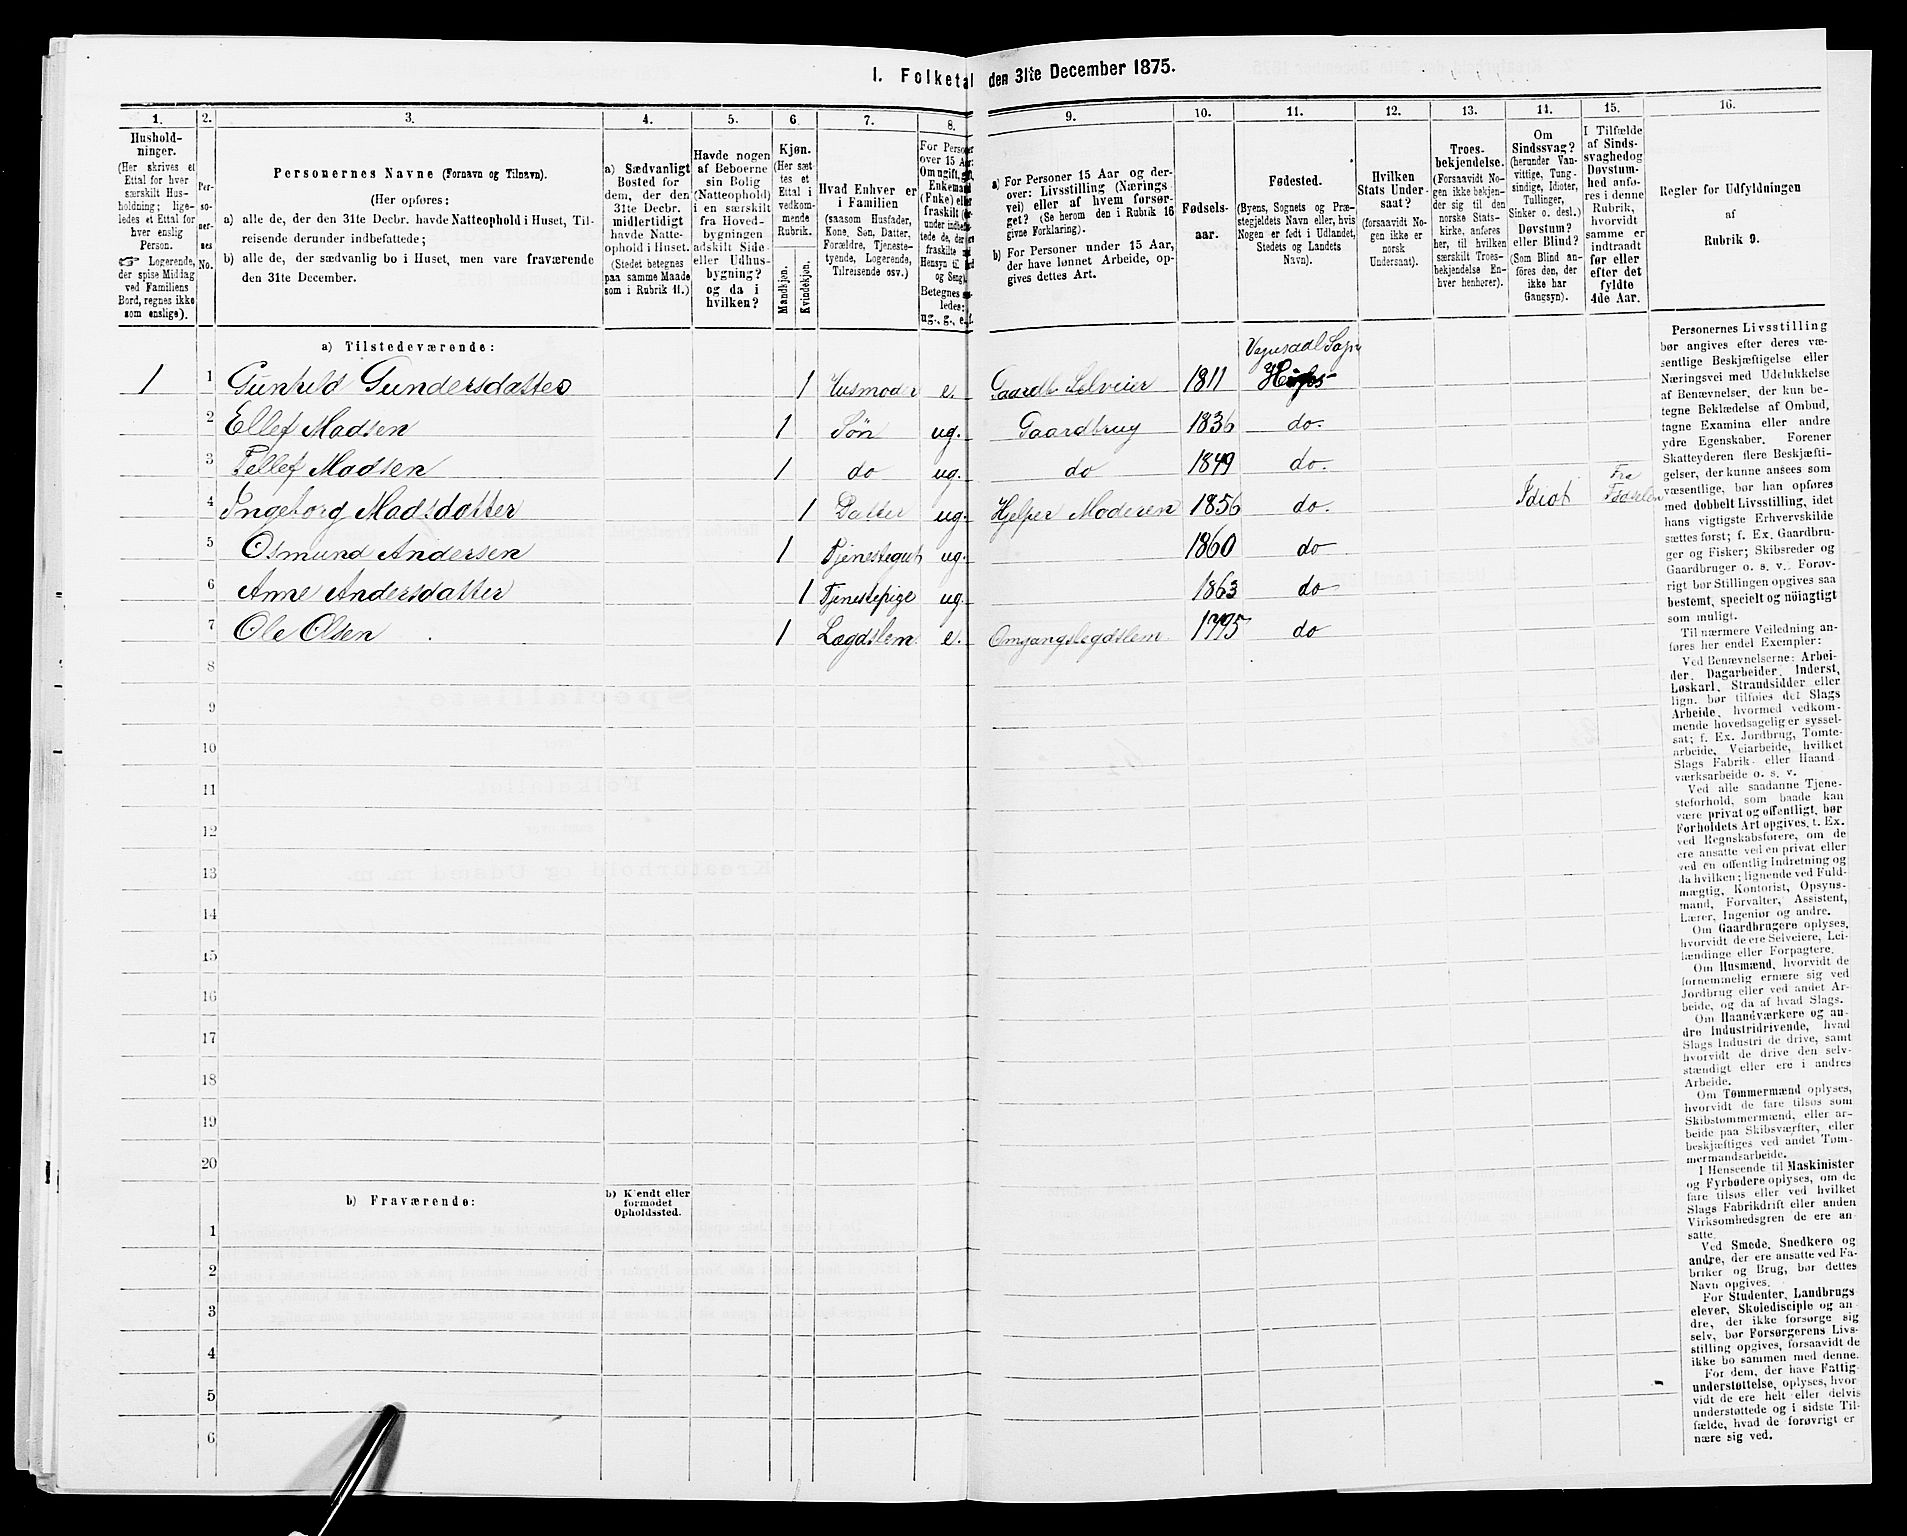 I. Folketal den 31te December 1875.
1. 2. 3. 4. 5. 6. 7. 8. 9. 10. 11. 12. 13. 14. 15. 16.
Hushold-
ninger.
(Her skrives et
Ettal for hver
særskilt Hus-
holdning; lige-
ledes et Ettal for
hver enslig
Person.
☞ Logerende,
der spise Middag
ved Familiens
Bord, regnes ikke
som enslige).
Per-
so-
ner-
nes
No.
Personernes Navne (Fornavn og Tilnavn).
(Her opføres:
a) alle de, der den 31te Decbr. havde Natteophold i Huset, Til-
reisende derunder indbefattede;
b) alle de, der sædvanlig bo i Huset, men vare fraværende
den 31te December.
a) Sædvanligt
Bosted for
dem, der den
31te Decbr.
midlertidigt
havde Natte-
ophold i Huset.
(Stedet betegnes
paa samme Maade
som i Rubrik 11.)
Havde nogen
af Beboerne
sin Bolig
(Natteophold)
i en særskilt
fra Hoved-
bygningen
adskilt Side-
eller Udhus-
bygning?
og da i
hvilken?
Kjøn.
(Her sæt-
tes et
Ettal i
vedkom-
mende
Rubrik.
Mandkjøn.
Kvindekjøn.
Hvad Enhver er
i Familien
(saasom Husfader,
Kone, Søn, Datter,
Forældre, Tjeneste-
tyende, Logerende,
Tilreisende osv.)
For Personer
over 15 Aar:
Om ugift, gift,
Enkemand
(Enke) eller
fraskilt
Betegnes
ledes:
ug., g., e., f.
a) For Personer 15 Aar og der-
over: Livsstilling (Nærings-
vei) eller af hvem forsør-
get? (Se herom den i Rubrik 16
givne Forklaring).
b) For Personer under 15 Aar,
der have lønnet Arbeide, op-
gives dettes Art.
Fødsels-
aar.
Fødested.
(Byens, Sognets og Præ-
stegjeldets Navn eller, hvis
Nogen er født i Udlandet,
Stedets og Landets
Navn).
Hvilken
Stats Under-
saat?
(forsaavidt No-
gen ikke er
norsk
Undersaat).
Troes-
bekjendelse.
(Forsaavidt No-
gen ikke bekjen-
der sig til den
norske Stats-
kirke, anføres
her, til hvilken
særskilt Troes-
bekjendelse En-
hver henhører).
Om
Sindssvag?
(herunder Van-
vittige, Tung-
sindige, Idioter,
Tullinger,
Sinker o. desl.)
Døvstum?
eller Blind?
(Som Blind an-
føres den, der
ikke har
Gangsyn).
I Tilfælde
af Sinds-
svaghed og
Døvstum-
hed anfø-
res i denne
Rubrik,
hvorvidt
samme er
indtraadt
før eller
efter det
fyldte
4de Aar.
Regler for Udfyldningen
af
Rubrik 9.
a) Tilstedeværende:
1 1 Gunhild Gundersdatter 1 Husmoder e. Gaardb. Selveier 1811 Vegusdal Sogn
2 Ellef Madsen 1 Søn ug. Gaardbrug 1836 do.
3 Tellef Madsen 1 do ug. do 1849 do.
4 Ingeborg Madsdatter 1 Datter ug. Hjelper Moderen 1856 do. Idiot Fra Fødselen
5 Osmund Andersen 1 Tjenestegut ug. 1860 do
6 Anne Andersdatter 1 Tjenestepige ug. 1863 do
7 Ole Olsen 1 Lægdslem e. Omgangslegdslem 1795 do
8
9
10
11
12
13
14
15
16
17
18
19
20
b) Fraværende: b) Kjendt eller
formodet
Opholdssted.
1
2
3
4
5
6
Personernes Livsstilling
bør angives efter deres væ-
sentlige Beskjæftigelse eller
Næringsvei med Udelukkelse
af Benævnelser, der kun be-
tegne Beklædelse af Ombud,
tagne Examina eller andre
ydre Egenskaber. Forener
Skatteyderen flere Beskjæfti-
gelser, der kunne ansees som
væsentlige, bør han opføres
med dobbelt Livsstilling, idet
hans vigtigste Erhvervskilde
sættes først; f. Ex. Gaardbru-
ger og Fisker; Skibsreder og
Gaardbruger o. s. v. Forøv-
rigt bør Stillingen opgives saa
bestemt, specielt og nöiagtigt
som muligt.
Til nærmere Veiledning an-
føres her endel Exempler:
Ved Benævnelserne: Arbei-
der, Dagarbeider, Inderst,
Løskarl, Strandsidder eller
lign. bør tilføies det Slags
Arbeide, hvormed vedkom-
mende hovedsagelig er syssel-
sat; f. Ex. Jordbrug, Tomte-
arbeide, Veiarbeide, hvilket
Slags Fabrik- eller Haand-
værksarbeide o. s. v.
Ved alle saadanne Tjene-
steforhold, som baade kan
være privat og offentligt, bør
Forholdets Art opgives, f. Ex.
ved Regnskabsførere, om de
ere ansatte ved en privat eller
ved en offentlig Indretning og
da hvilken; lignende ved Fuld-
mægtig, Kontorist, Opsyns-
mand, Forvalter, Assistent,
Lærer, Ingeniør og andre.
Om Gaardbrugere oplyses,
hvorvidt de ere Selveiere, Lei-
lændinge eller Forpagtere.
Om Husmænd, hvorvidt de
fornemmelig ernære sig ved
Jordbrug eller ved andet Ar-
beide, og da af hvad Slags.
Om Haandværkere og an-
dre Industridrivende, hvad
Slags Industri de drive, samt
hvorvidt de drive den selv-
stændigt eller ere i andres
Arbeide.
Om Tømmermænd oplyses,
hvorvidt de fare tilsøs som
Skibstømmermænd, eller ar-
beide paa Skibsværfter, eller
beskjæftiges ved andet Tøm-
mermandsarbeide.
I Henseende til Maskinister
og Fyrbødere oplyses, om de
fare tilsøs eller ved hvilket
Slags Fabrikdrift eller anden
Virksomhedsgren de ere an-
satte.
Ved Smede, Snedkere og
andre, der ere ansatte ved Fa-
briker og Brug, bør dettes
Navn opgives.
For Studenter, Landbrugs-
elever, Skoledisciple og an-
dre, der ikke forsørge sig
selv, bør Forsørgerens Livs-
stilling opgives, forsaavidt de
ikke bo sammen med denne.
For dem, der have Fattig-
understøttelse, oplyses, hvor-
vidt de ere helt eller delvis
understøttede og i sidste Til-
fælde, hvad de forøvrigt er-
nære sig ved.